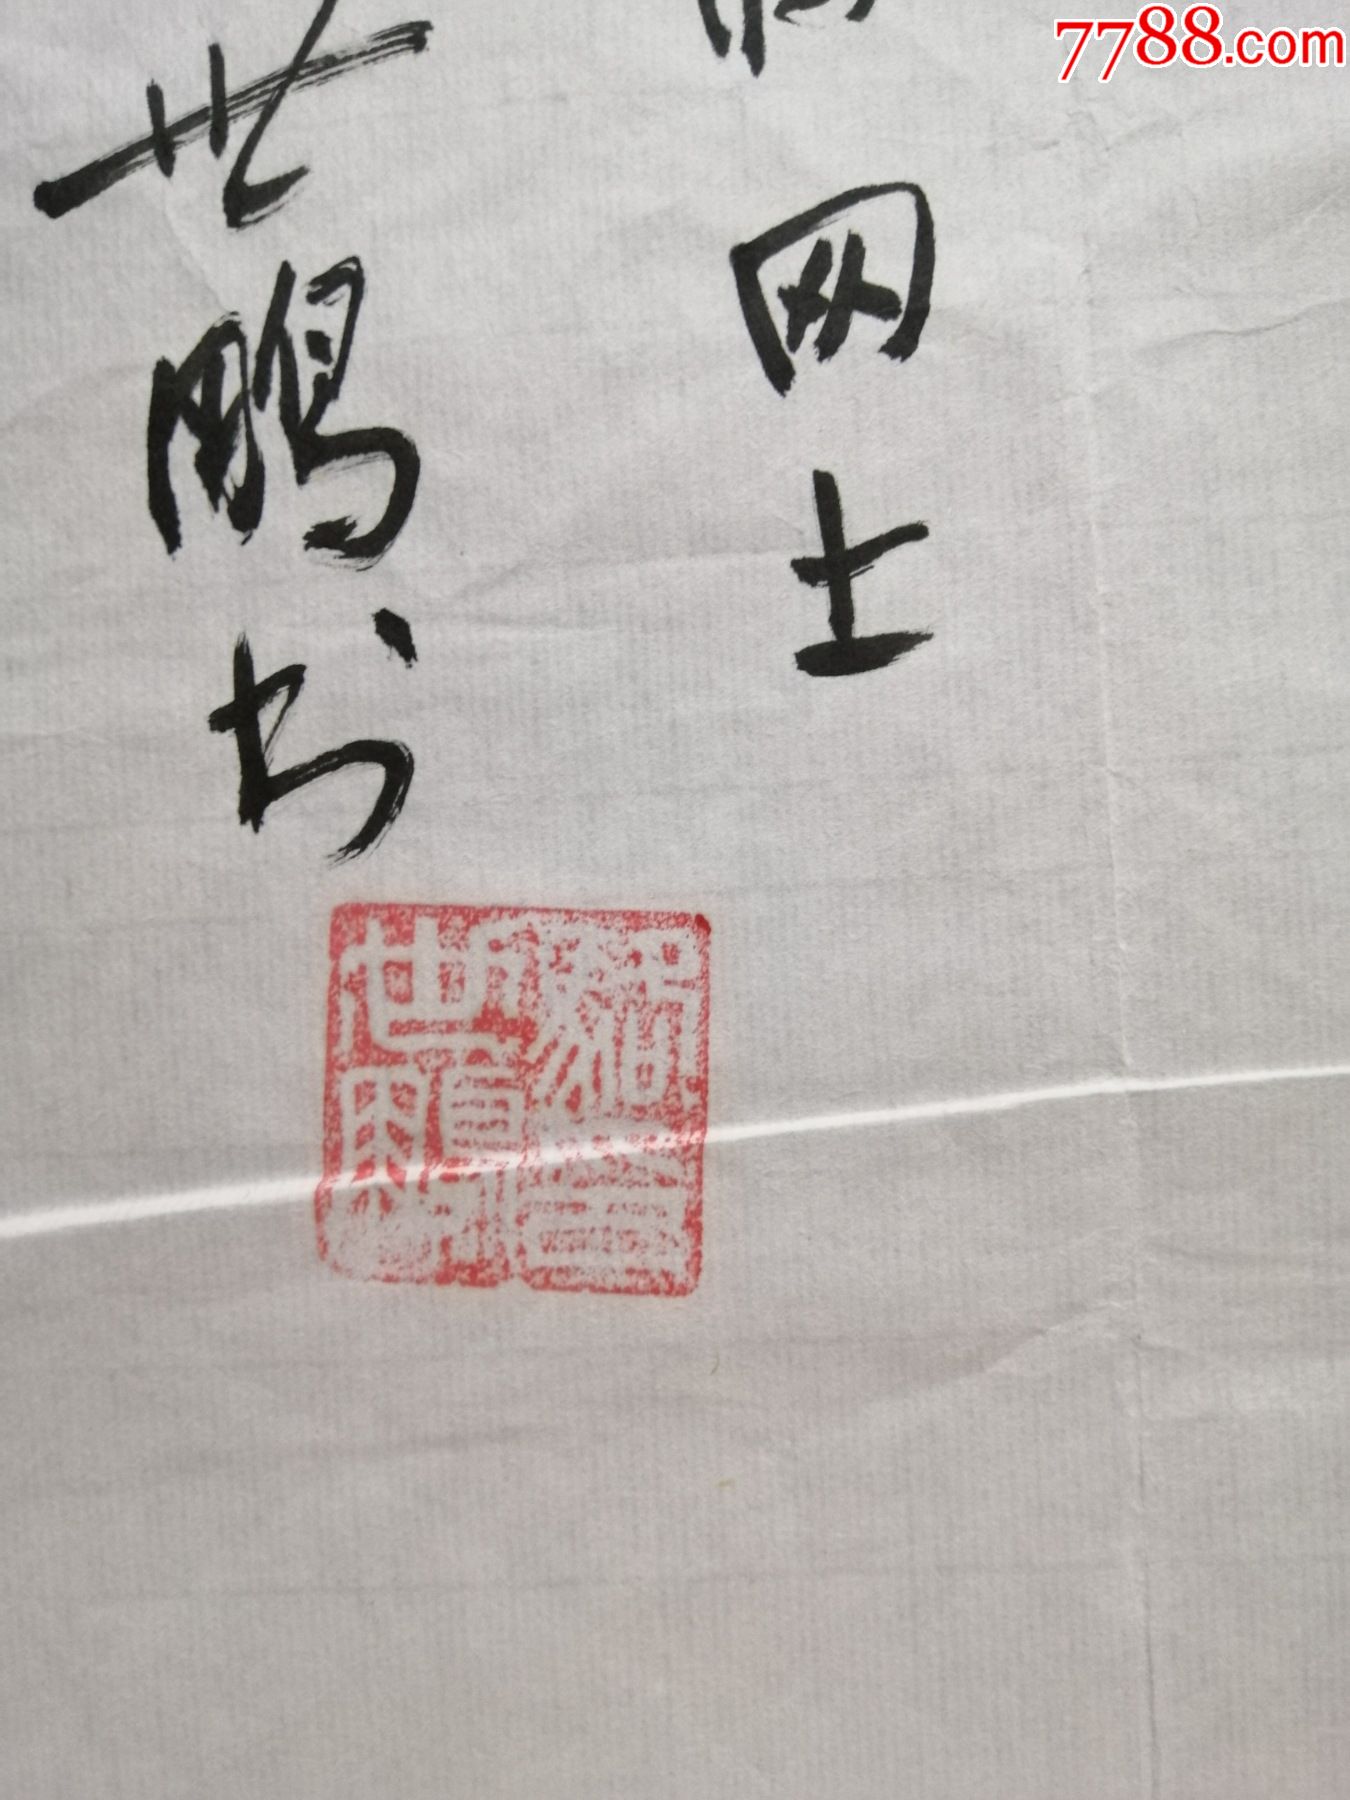 7788.com
网士
世鹏书
世鹏